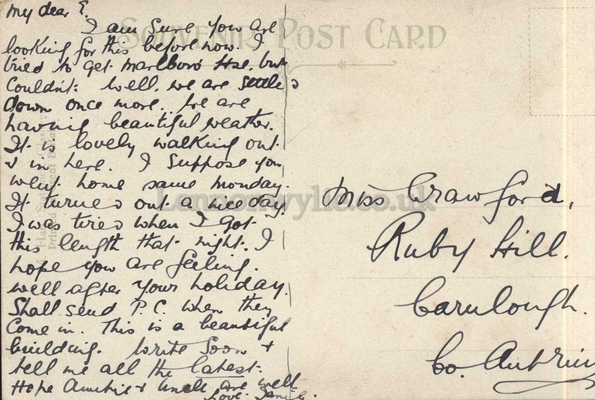 SOUVENIR POST CARD
My dear E.
I am sure you are
looking for this before now. I
tried to get Marlboro Hse. but
couldn't: Well. we are settled
down once more. We are
having beautiful weather.
It is lovely walking out
& in here. I suppose you
went home same Monday.
It turned out a nice day.
I was tired when I got
this length that night. I
hope you are feeling
well after your holiday.
Shall send P.C. when they
come in. This is a beautiful
building. Write soon &
tell me all the latest.
Hope Auntie & Uncle are well
Love.
Miss Crawford,
Ruby Hill.
Carnlough.
Co. Antrim